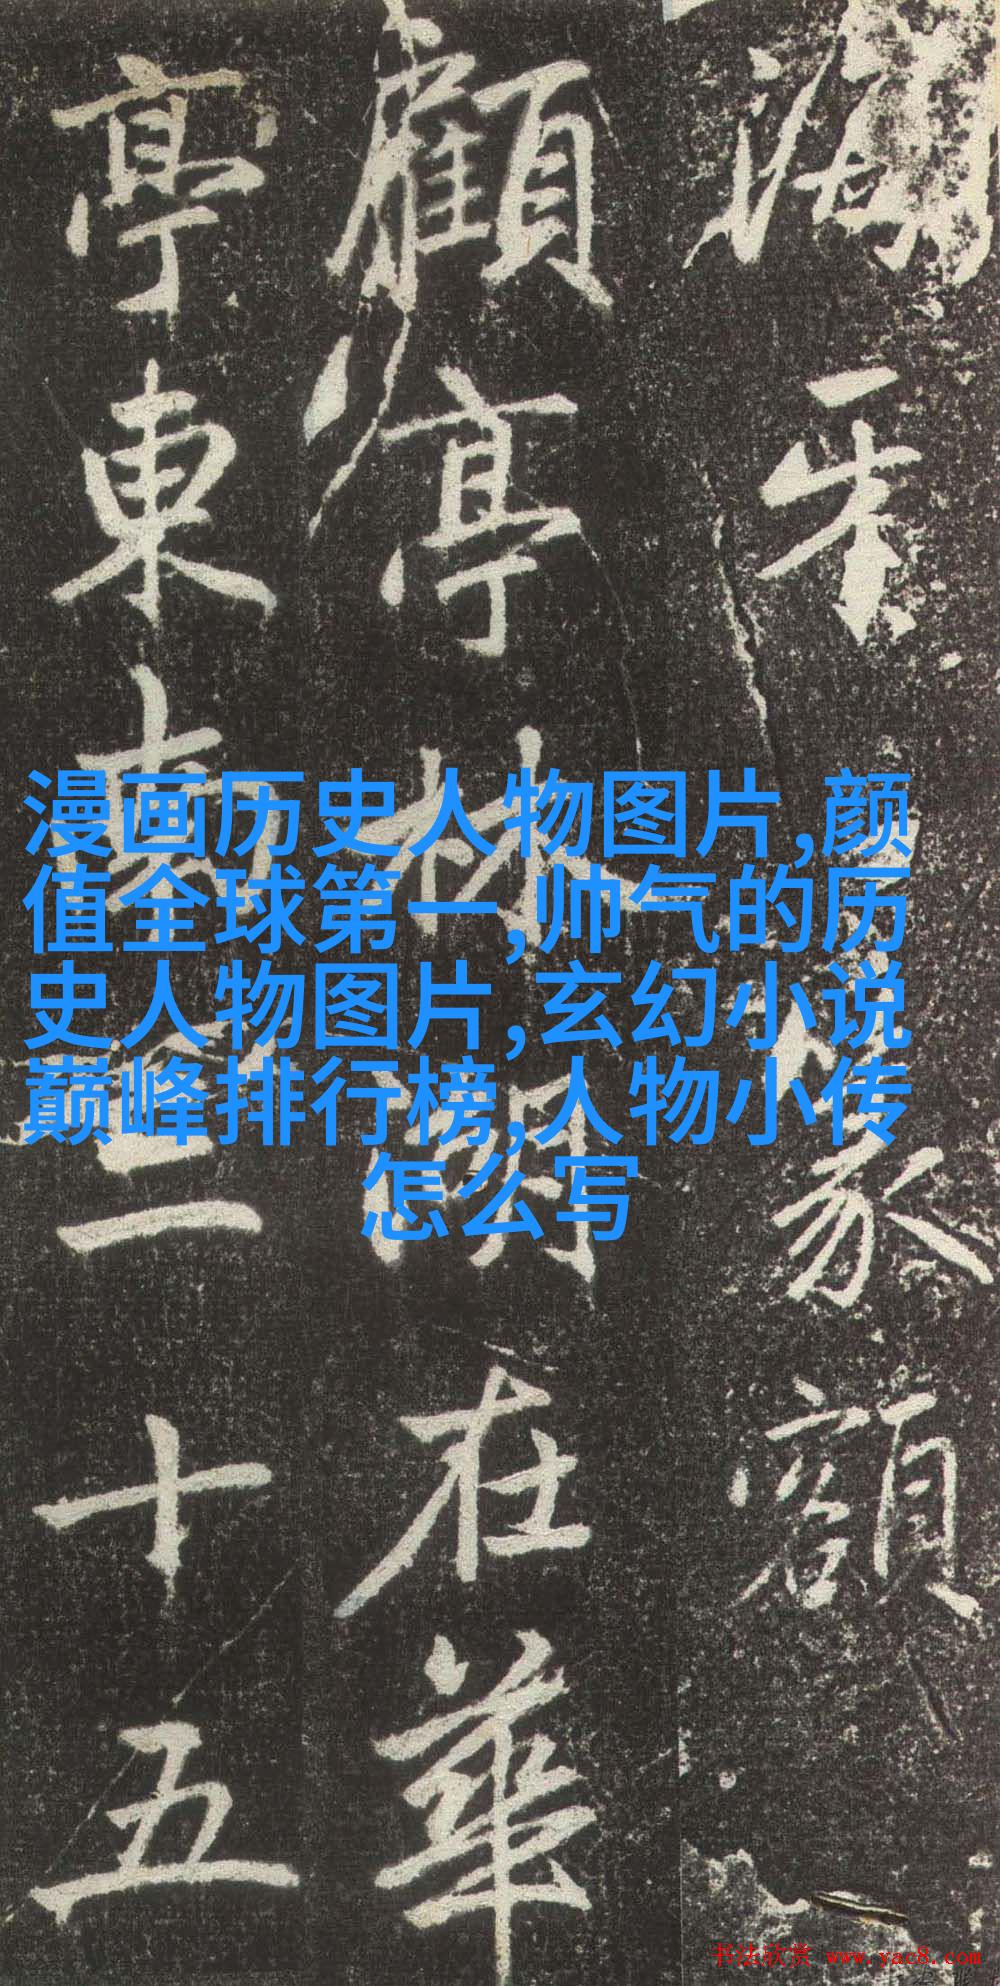 篆額
顧亭林湖在華
亭東南三十五
漫画历史人物图片,颜
值全球第一,帅气的历
史人物图片,玄幻小说
巅峰排行榜,人物小传
怎么写
书法欣赏 www.yac8.com